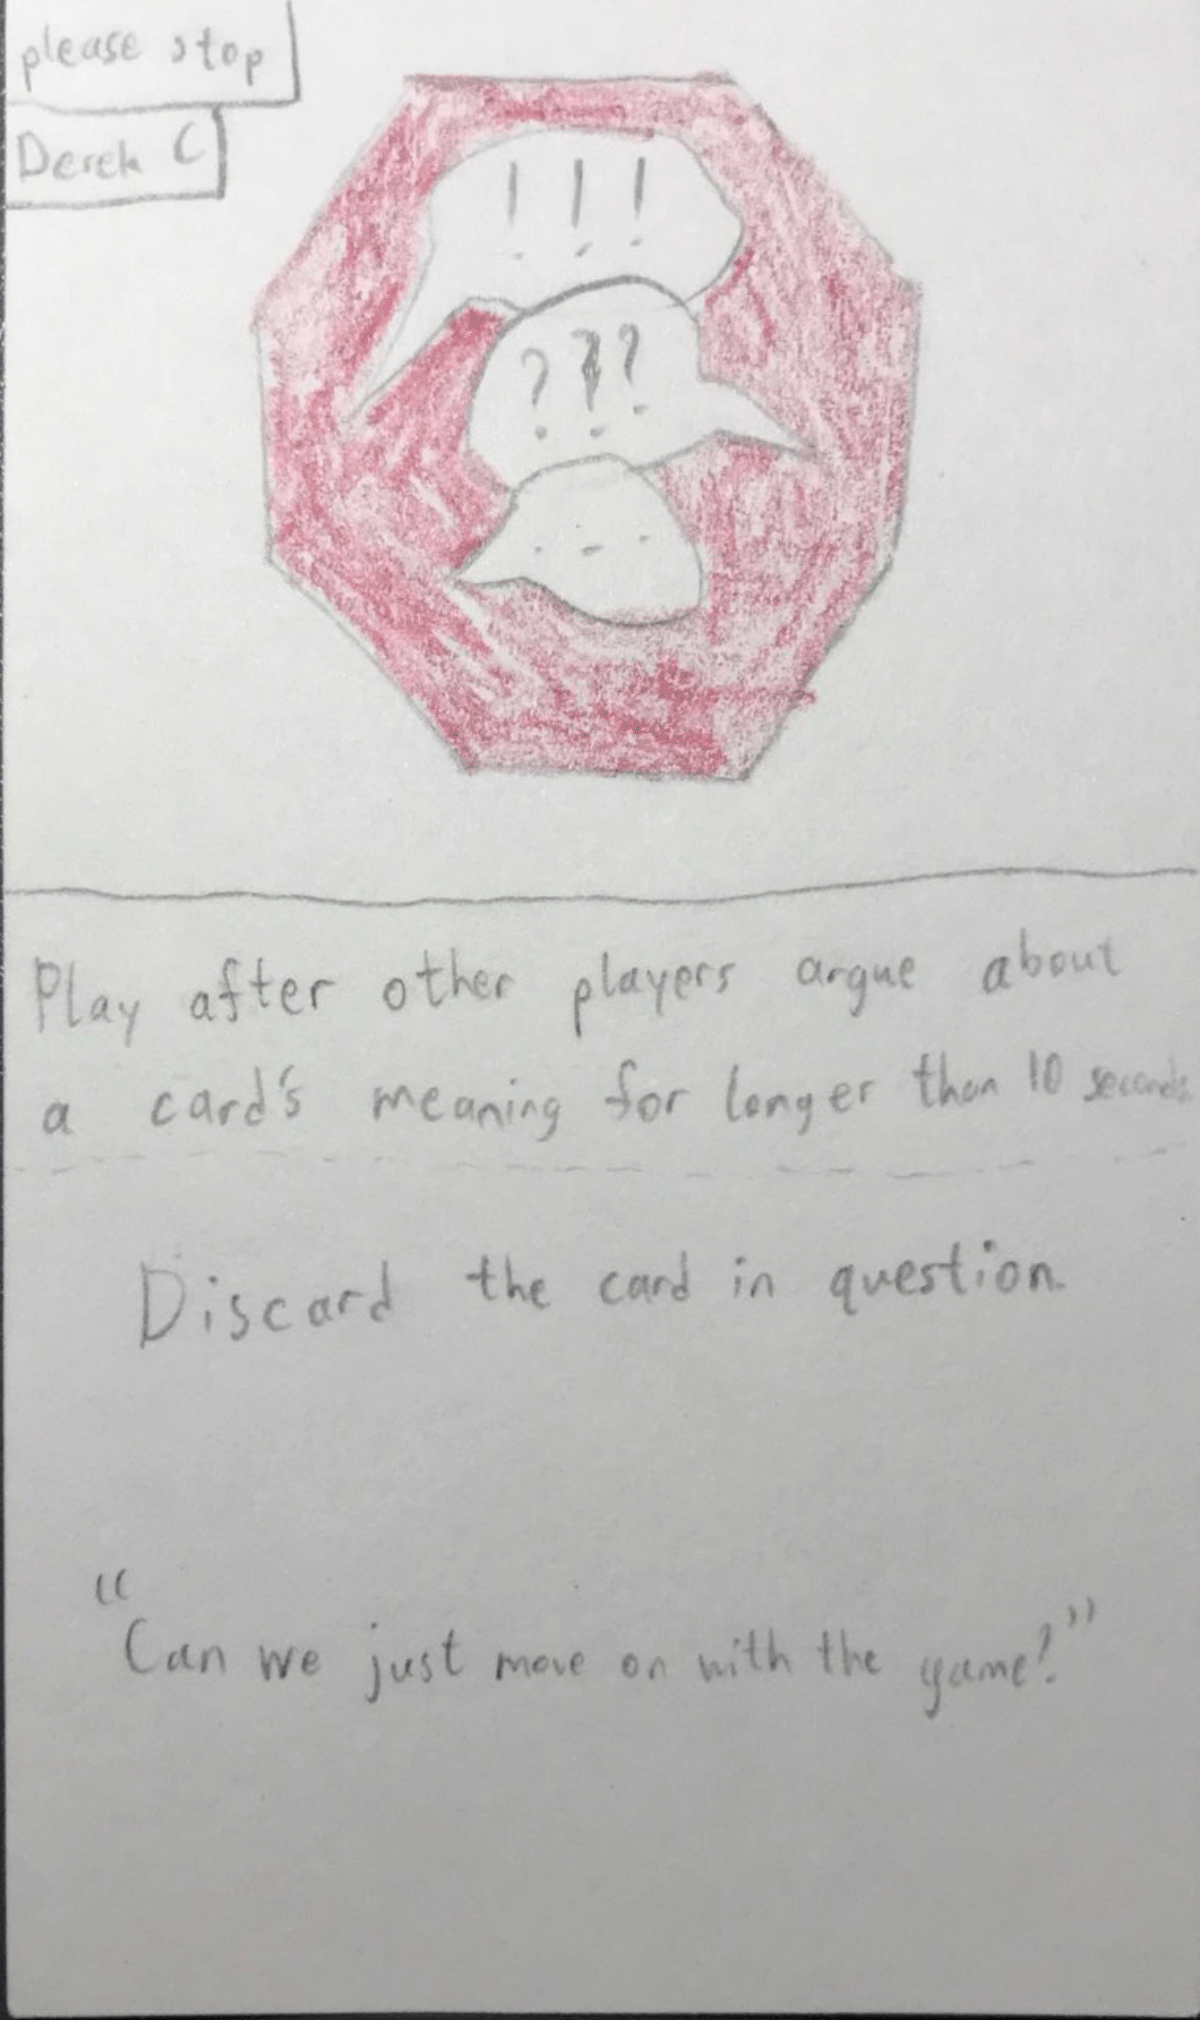 please stop
Derek C
! ! !
? ? ?
. . .
Play after other players argue about
a card's meaning for longer than 10 seconds.
Discard the card in question.
"Can we just move on with the game?"